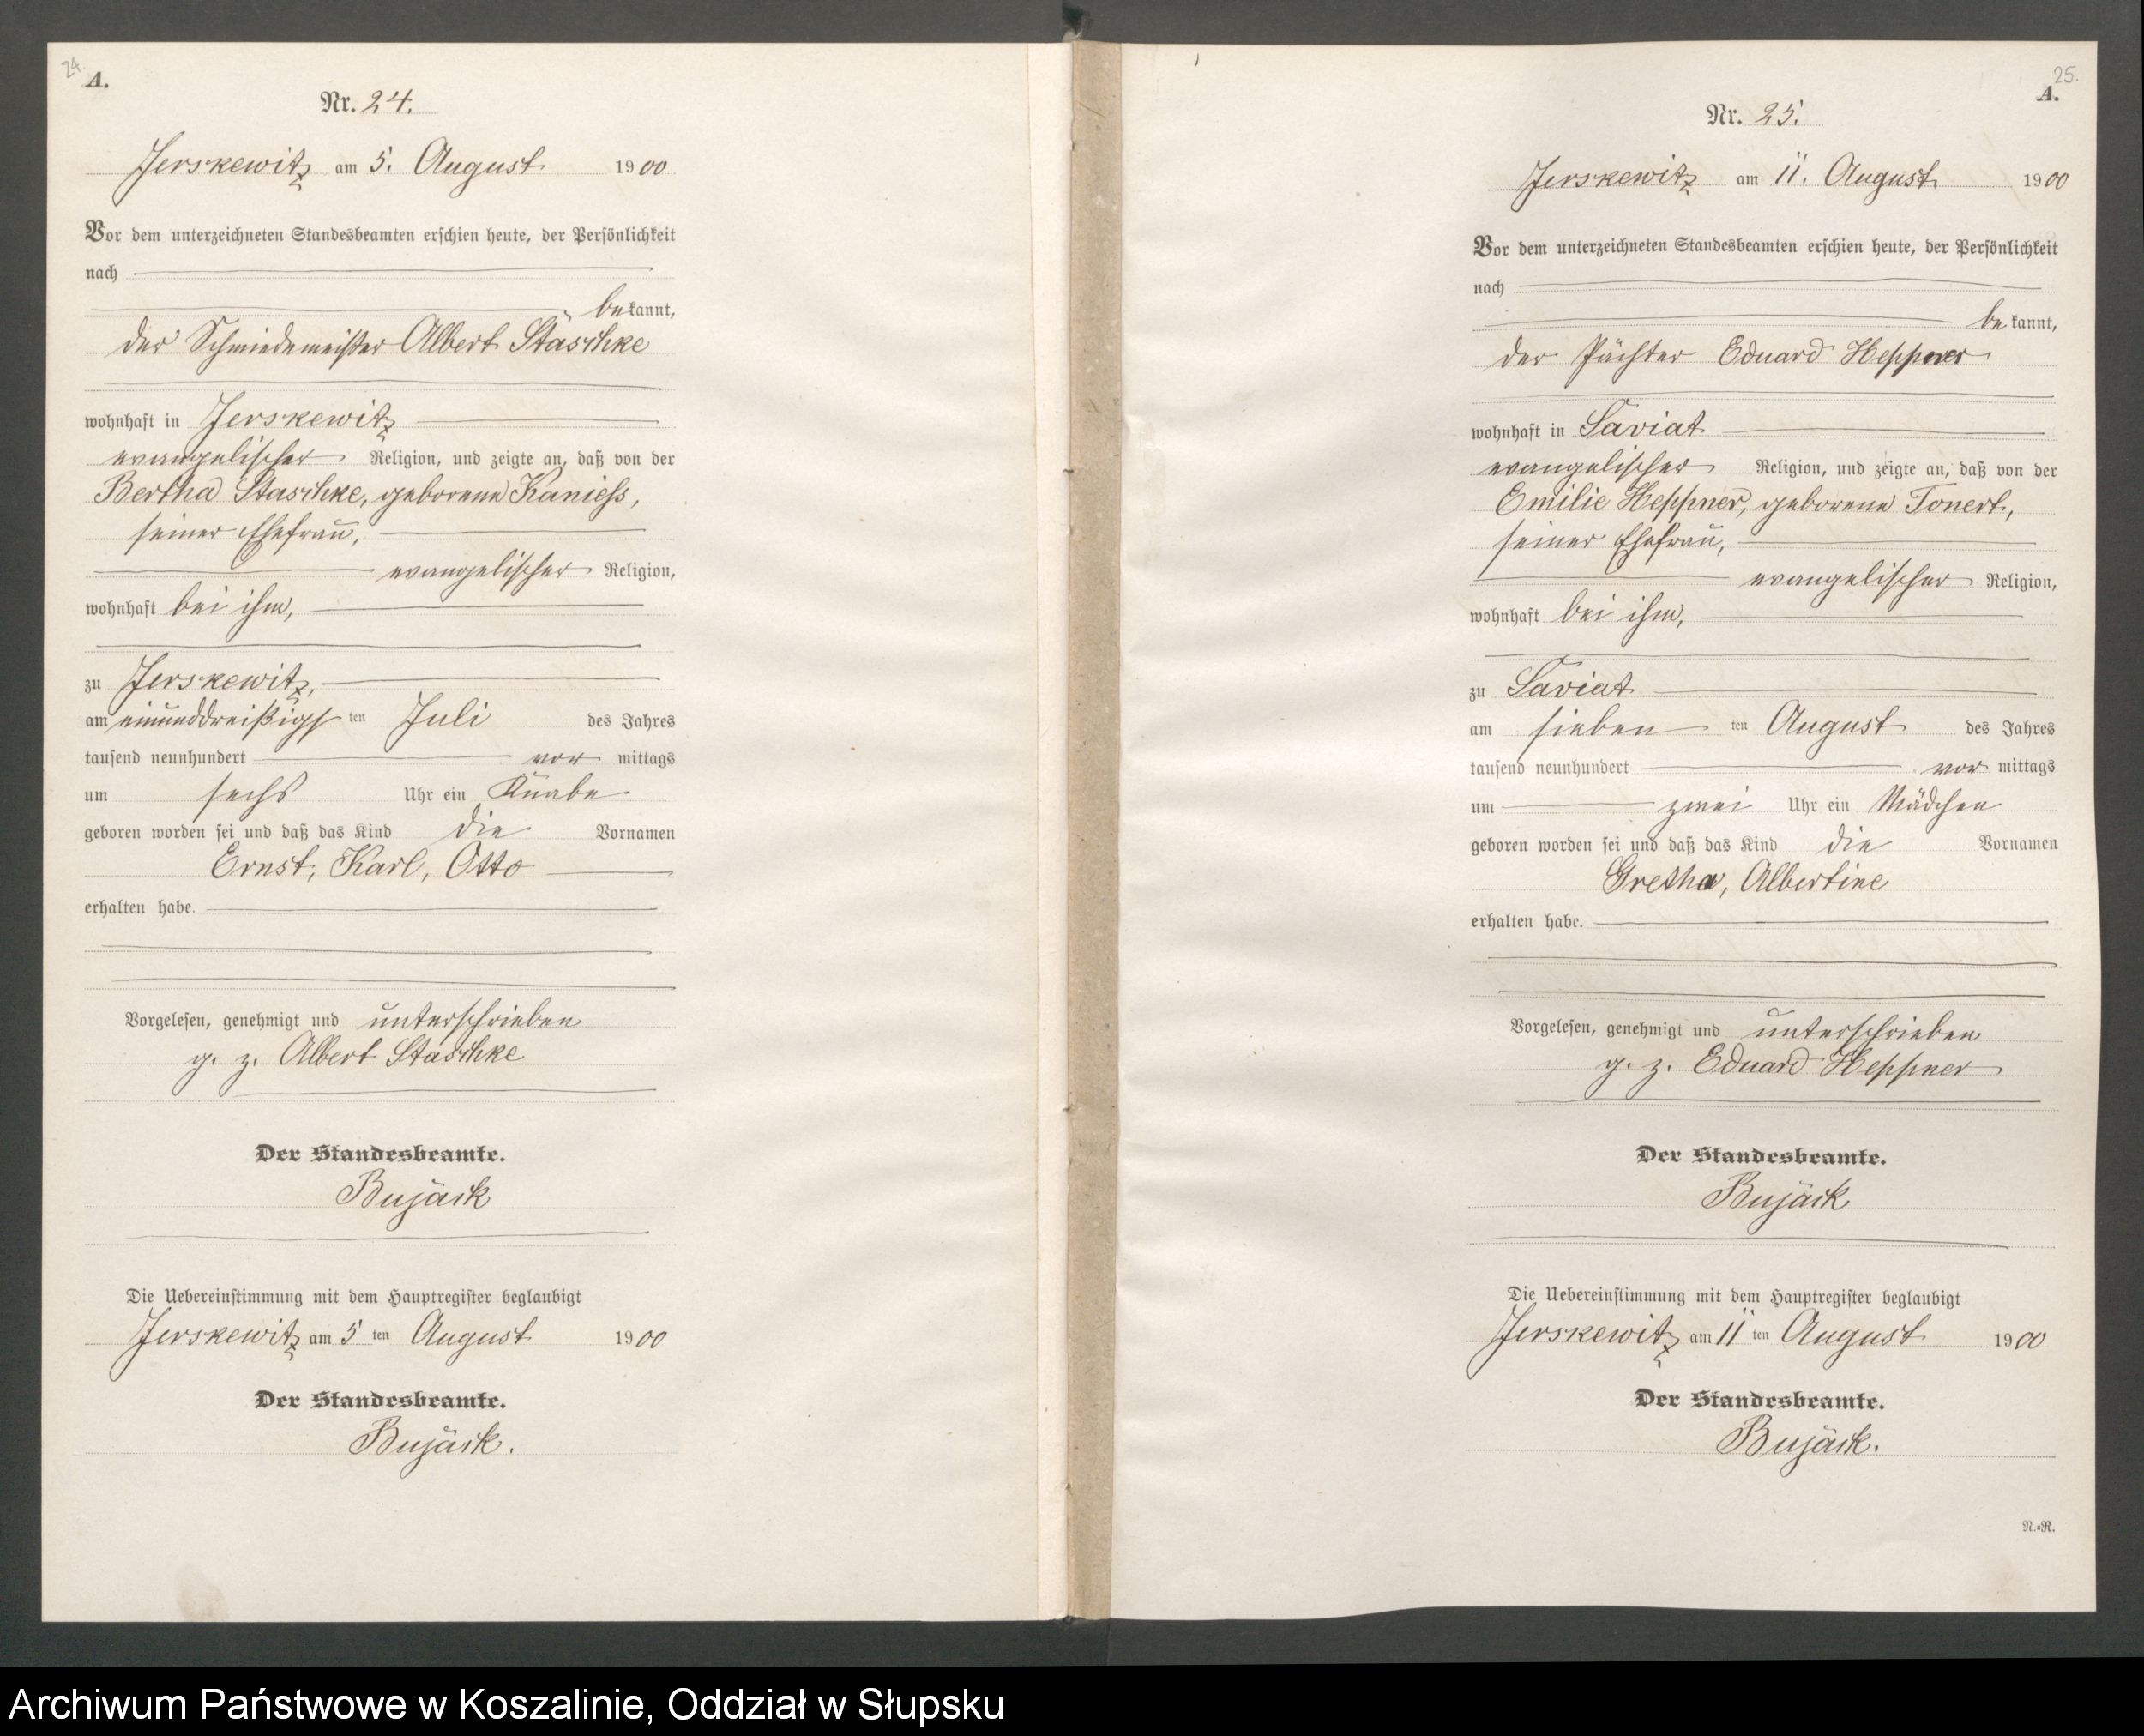 24
A.
Nr. 24.
Jerskewitz am 5. August 1900
Vor dem unterzeichneten Standesbeamten erschien heute, der Persönlichkeit
nach
bekannt,
der Schmiedemeister Albert Staschke
wohnhaft in Jerskewitz
evangelischer Religion, und zeigte an, daß von der
Bertha Staschke, geborene Kaniess,
seiner Ehefrau,
evangelischer Religion,
wohnhaft bei ihm,
zu Jerskewitz,
am einunddreißigsten Juli des Jahres
tausend neunhundert vor mittags
um sechs Uhr ein Knabe
geboren worden sei und daß das Kind die Vornamen
Ernst, Karl, Otto
erhalten habe.
Vorgelesen, genehmigt und unterschrieben
g. z. Albert Staschke
Der Standesbeamte.
Bujäck
Die Uebereinstimmung mit dem Hauptregister beglaubigt
Jerskewitz am 5 ten August 1900
Der Standesbeamte.
Bujäck.
25.
A.
Nr. 25.
Jerskewitz am 11. August 1900
Vor dem unterzeichneten Standesbeamten erschien heute, der Persönlichkeit
nach
bekannt,
der Pächter Eduard Heppner
wohnhaft in Saviat
evangelischer Religion, und zeigte an, daß von der
Emilie Heppner, geborene Tonert,
seiner Ehefrau,
evangelischer Religion,
wohnhaft bei ihm,
zu Saviat
am sieben ten August des Jahres
tausend neunhundert vor mittags
um zwei Uhr ein Mädchen
geboren worden sei und daß das Kind die Vornamen
Gretha, Albertine
erhalten habe.
Vorgelesen, genehmigt und unterschrieben
g. z. Eduard Heppner
Der Standesbeamte.
Bujäck
Die Uebereinstimmung mit dem Hauptregister beglaubigt
Jerskewitz am 11 ten August 1900
Der Standesbeamte.
Bujäck.
N.=R.
Archiwum Państwowe w Koszalinie, Oddział w Słupsku